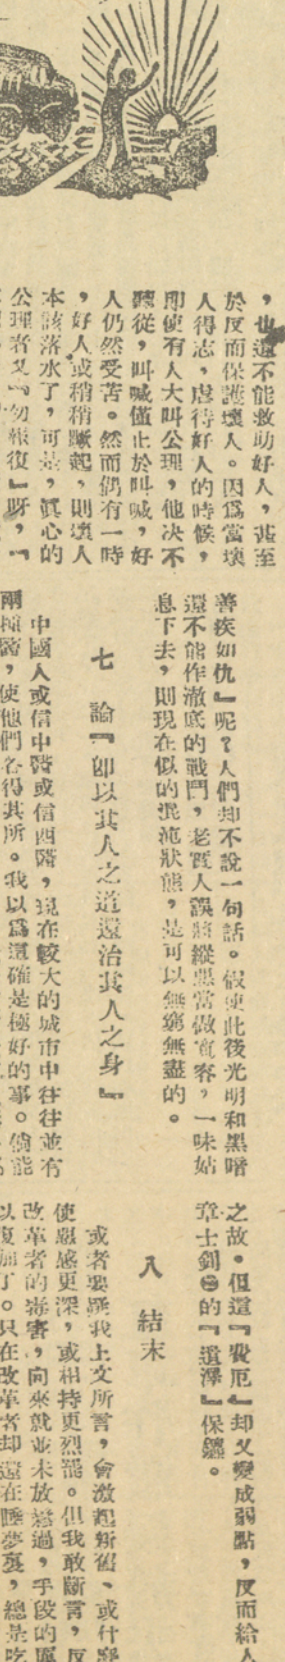 ，也還不能救助好人，甚至
於反而保護壞人。因爲當壞
人得志，虐待好人的時候，
即使有人大叫公理，他决不
聽從，叫喊僅止於叫喊，好
人仍然受苦。然而偶有一時
，好人或稍稍蹶起，則壞人
本該落水了，可是，眞心的
公理者又『勿報復』呀，『
善疾如仇』呢？人們却不說一句話。假使此後光明和黑暗
還不能作澈底的戰鬥，老實人誤將縱惡當做寬容，一味姑
息下去，則現在似的混沌狀態，是可以無窮無盡的。
七　論『卽以其人之道還治其人之身』
中國人或信中醫或信西醫，現在較大的城市中往往並有
兩種醫，使他們各得其所。我以爲這確是極好的事。倘能
之故。但這『費厄』却又變成弱點，反而給人
章士釗●的『遺澤』保鑣。
八　結末
或者要疑我上文所言，會激起新舊、或什麽
使惡感更深，或相持更烈罷。但我敢斷言，反
改革者的毒害，向來就並未放鬆過，手段的厲
以復加了。只在改革者却還在睡夢裏，總是吃